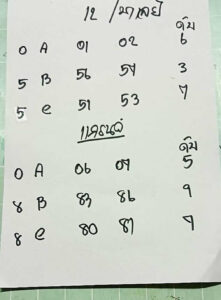 12 / มาเลย์
ดับ
0 A 01 02 6
5 B 56 57 3
5 C 51 53 7
ดับ
0 A 06 07 5
8 B 83 86 9
8 C 80 87 7